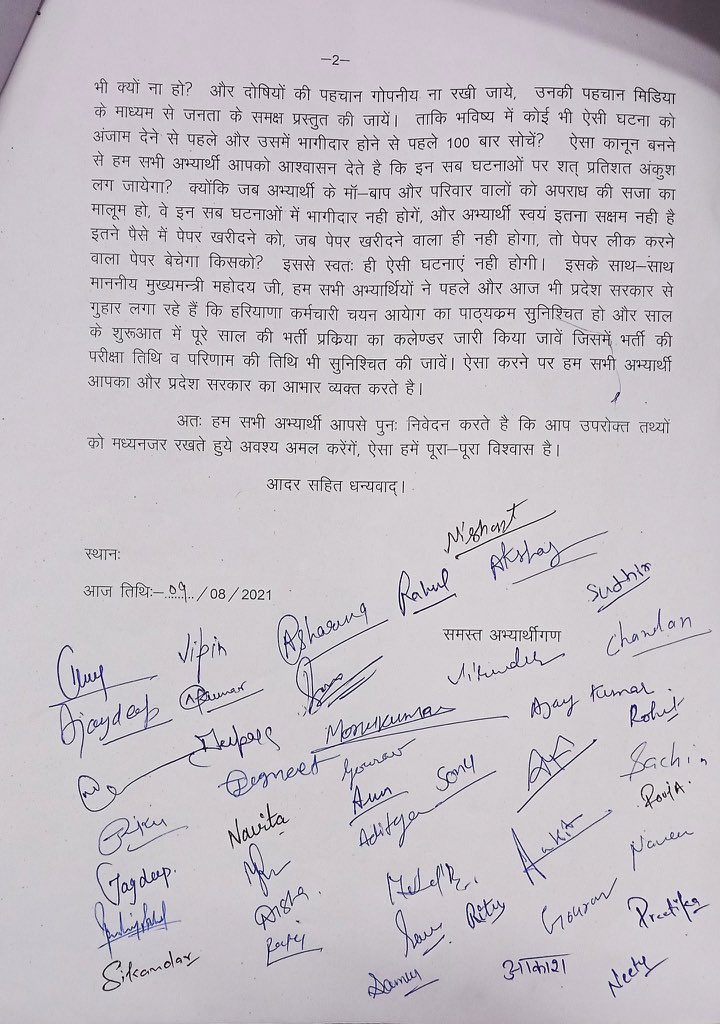 —2—
भी क्यों ना हो? और दोषियों की पहचान गोपनीय ना रखी जाये, उनकी पहचान मिडिया
के माध्यम से जनता के समक्ष प्रस्तुत की जायें। ताकि भविष्य में कोई भी ऐसी घटना को
अंजाम देने से पहले और उसमें भागीदार होने से पहले 100 बार सोचें? ऐसा कानून बनने
से हम सभी अभ्यार्थी आपको आश्वासन देते है कि इन सब घटनाओं पर शत् प्रतिशत अंकुश
लग जायेगा? क्योंकि जब अभ्यार्थी के मॉ–बाप और परिवार वालों को अपराध की सजा का
मालूम हो, वे इन सब घटनाओं में भागीदार नही होगें, और अभ्यार्थी स्वयं इतना सक्षम नही है
इतने पैसे में पेपर खरीदने को, जब पेपर खरीदने वाला ही नही होगा, तो पेपर लीक करने
वाला पेपर बेचेगा किसको? इससे स्वतः ही ऐसी घटनाएं नही होगी। इसके साथ–साथ
माननीय मुख्यमन्त्री महोदय जी, हम सभी अभ्यार्थियों ने पहले और आज भी प्रदेश सरकार से
गुहार लगा रहे हैं कि हरियाणा कर्मचारी चयन आयेाग का पाठ्यकम सुनिश्चित हो और साल
के शुरूआत में पूरे साल की भर्ती प्रकिया का कलेण्डर जारी किया जावें जिसमें भर्ती की
परीक्षा तिथि व परिणाम की तिथि भी सुनिश्चित की जावें। ऐसा करने पर हम सभी अभ्यार्थी
आपका और प्रदेश सरकार का आभार व्यक्त करते है।
अतः हम सभी अभ्यार्थी आपसे पुनः निवेदन करते है कि आप उपरोक्त तथ्यों
को मध्यनजर रखते हुये अवश्य अमल करेंगें, ऐसा हमें पूरा–पूरा विश्वास है।
आदर सहित धन्यवाद्।
Nishant
स्थानः
आज तिथिः–09/08/2021
Rahul Akshay Sudhir
समस्त अभ्यार्थीगण
Vipin
Chandan
Ajaydeep
Monukumar Ajay Kumar
Rohit
Gourav
Sachin
Arun Sony
Rinku Navita Aditya
Pooja.
Jagdeep. Ankit Naveen
Aisha. Ritu Gourav Preetika
Sikandar आकाश Neetu